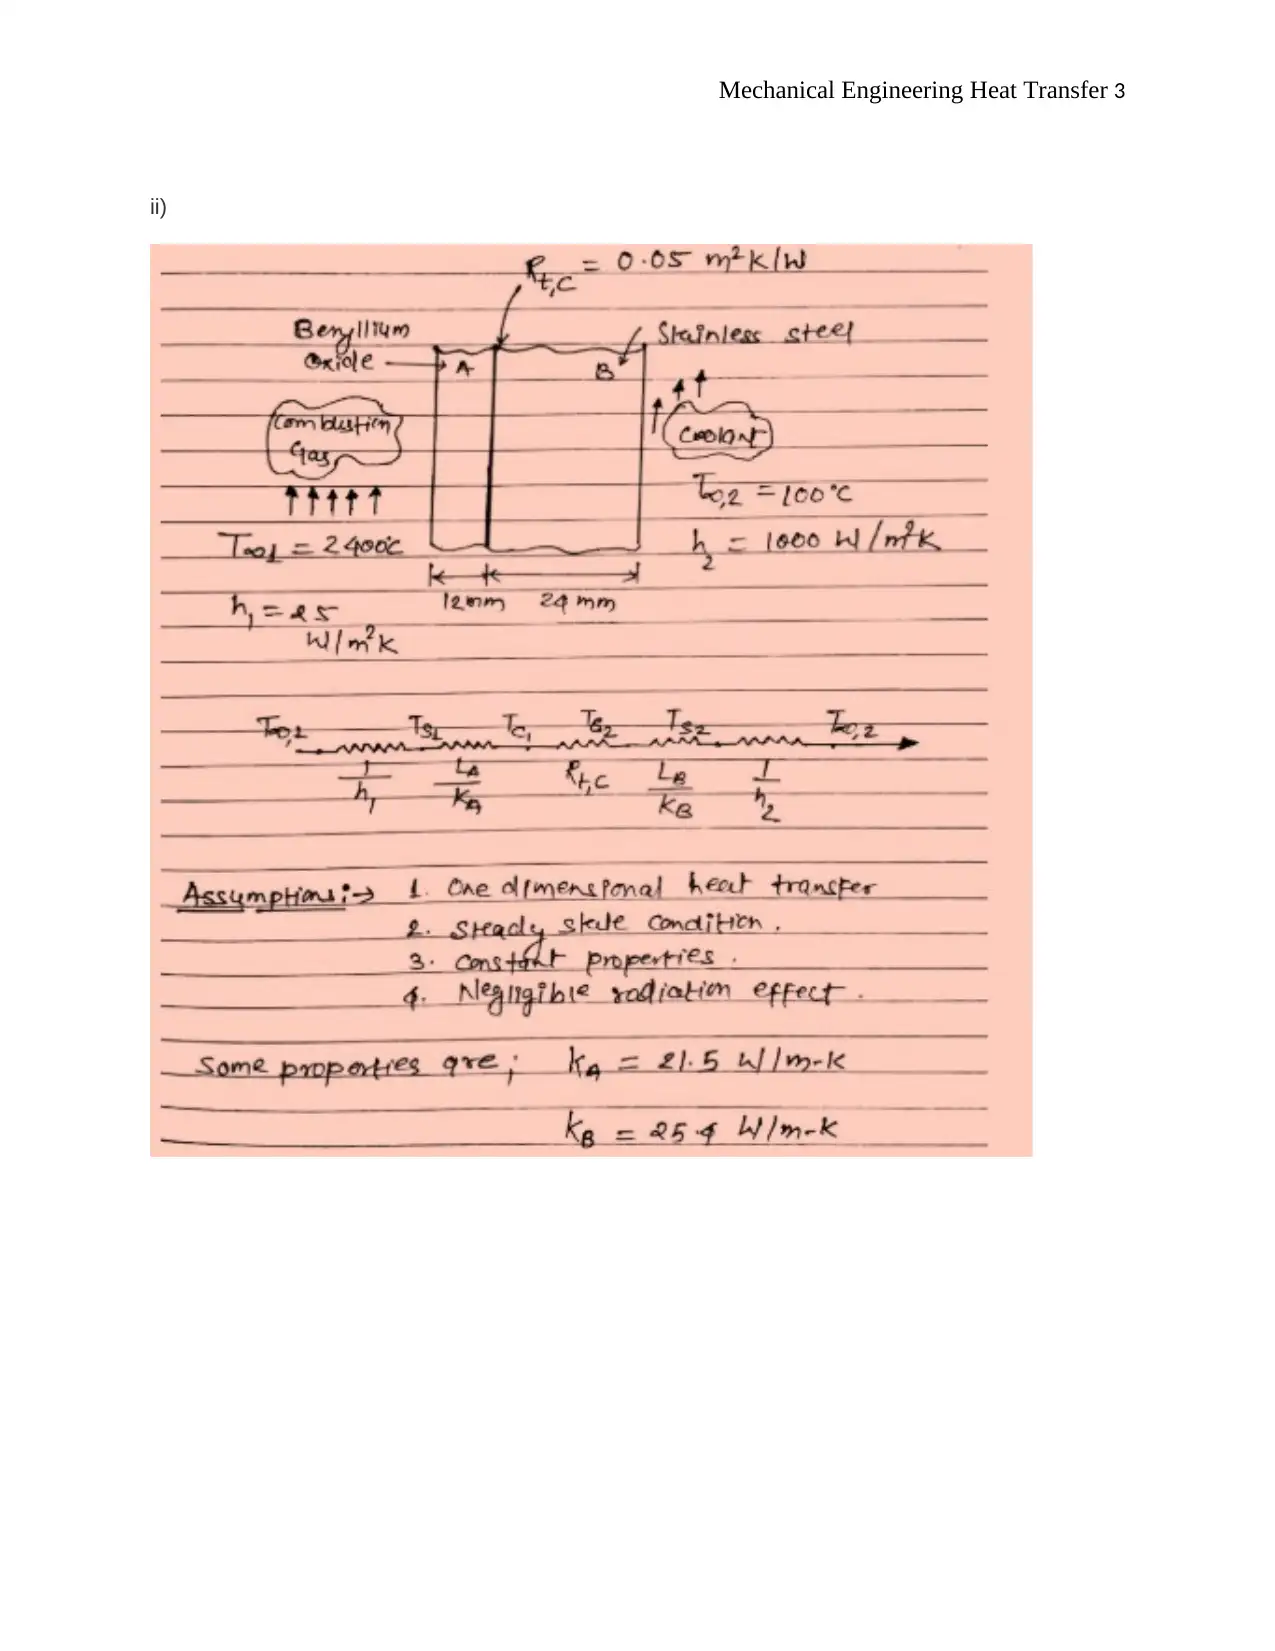 Mechanical Engineering Heat Transfer 3
ii)
Rt,c = 0.05 m²K/W
Beryllium
Oxide
A
B
Stainless steel
Combustion
Gas
Coolant
T∞,2 = 100°C
T∞1 = 2400°C
h2 = 1000 W/m²K
12mm 24 mm
h1 = 25
W/m²K
T∞,1 TS1 TC1 TC2 TS2 T∞,2
1/h1 LA/KA Rt,C LB/KB 1/h2
Assumptions:→ 1. One dimensional heat transfer
2. Steady state condition.
3. Constant properties.
4. Negligible radiation effect.
Some properties are; kA = 21.5 W/m-k
kB = 25.4 W/m-k